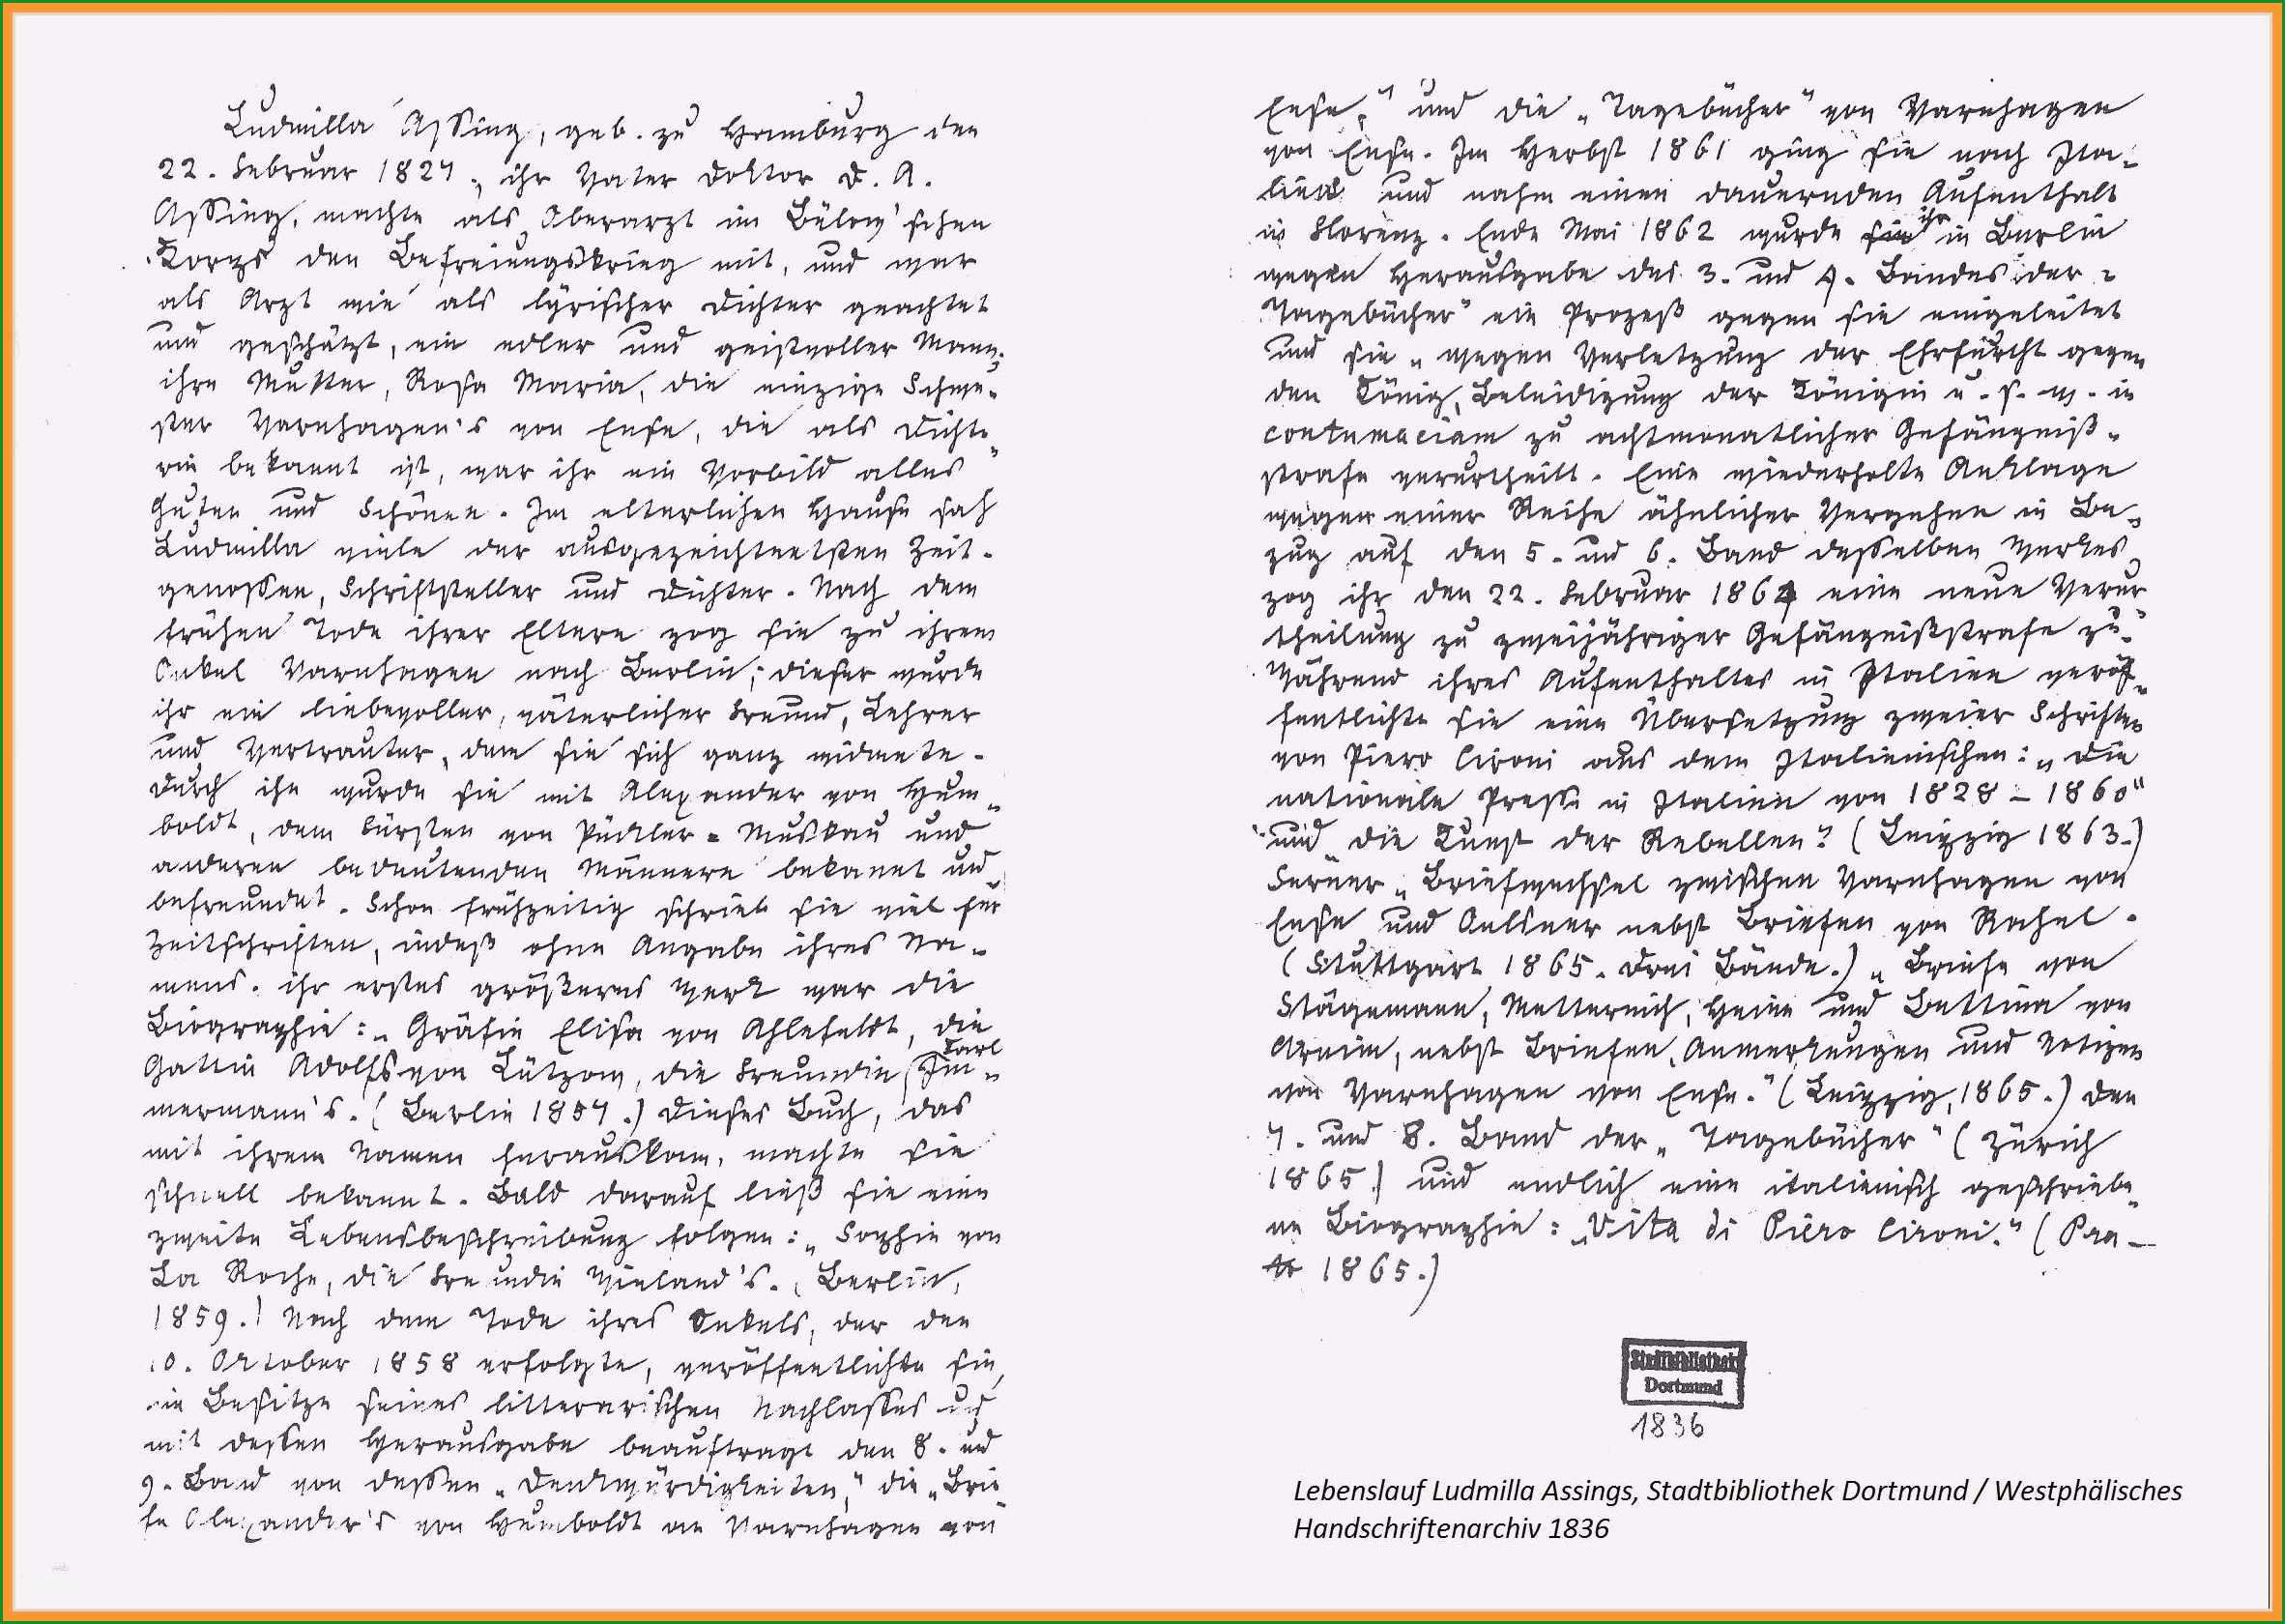 Ludmilla Assing, geb. zu Hamburg den
22. Februar 1827, ihr Vater Doktor D. A.
Assing, machte als Oberarzt im Bülow'schen
Korps den Befreiungskrieg mit, und war
als Arzt wie als lyrischer Dichter geachtet
und geschätzt, ein edler und geistvoller Mann;
ihre Mutter, Rosa Maria, die einzige Schwe-
ster Varnhagen's von Ense, die als Dichte-
rin bekannt ist, war ihr ein Vorbild alles
Guten und Schönen. Im elterlichen Hause sah
Ludmilla viele der ausgezeichnetsten Zeit-
genossen, Schriftsteller und Dichter. Nach dem
frühen Tode ihrer Eltern zog sie zu ihrem
Onkel Varnhagen nach Berlin; dieser wurde
ihr ein liebevoller, väterlicher Freund, Lehrer
und Vertrauter, dem sie sich ganz widmete.
Durch ihn wurde sie mit Alexander von Hum-
boldt, dem Fürsten von Pückler-Muskau und
anderen bedeutenden Männern bekannt und
befreundet. Schon frühzeitig schrieb sie viel für
Zeitschriften, indeß ohne Angabe ihres Na-
mens. ihr erstes größeres Werk war die
Biographie: „Gräfin Elisa von Ahlefeldt, die
Gattin Adolfs von Lützow, die Freundin Karl Im-
mermann's. (Berlin 1857.) Dieses Buch, das
mit ihrem Namen herauskam, machte sie
schnell bekannt. Bald darauf ließ sie eine
zweite Lebensbeschreibung folgen: „Sophie von
La Roche, die Freundin Wieland's. (Berlin,
1859.) Nach dem Tode ihres Onkels, der den
10. Oktober 1858 erfolgte, veröffentlichte sie,
im Besitze seines litterarischen Nachlasses und
mit dessen Herausgabe beauftragt den 8. und
9. Band von dessen „Denkwürdigkeiten," die „Brie-
fe Alexander's von Humboldt an Varnhagen von
Ense," und die „Tagebücher" von Varnhagen
von Ense. Im Herbst 1861 ging sie nach Ita-
lien und nahm einen dauernden Aufenthalt
in Florenz. Ende Mai 1862 wurde sie ihr in Berlin
wegen Herausgabe des 3. und 4. Bandes der „
Tagebücher" ein Prozeß gegen sie eingeleitet
und sie „wegen Verletzung der Ehrfurcht gegen
den König, Beleidigung der Königin u. s. w. in
contumaciam zu achtmonatlicher Gefängniß-
strafe verurtheilt. Eine wiederholte Anklage
wegen einer Reihe ähnlicher Vergehen in Be-
zug auf den 5. und 6. Band desselben Werkes
zog ihr den 22. Februar 1864 eine neue Verur-
theilung zu zweijähriger Gefängnißstrafe zu.
Während ihres Aufenthaltes in Italien veröf-
fentlichte sie eine Übersetzung zweier Schriften
von Piero Cironi aus dem Italienischen: „Die
nationale Presse in Italien von 1828 – 1860"
und „die Kunst der Rebellen" (Leipzig 1863.)
Ferner „Briefwechsel zwischen Varnhagen von
Ense und Oelsner nebst Briefen von Rahel.
(Stuttgart 1865. Drei Bände.) „Briefe von
Stägemann, Metternich, Heine und Bettina von
Arnim, nebst Briefen, Anmerkungen und Notizen
von Varnhagen von Ense." (Leipzig, 1865.) Den
7. und 8. Band der „Tagebücher" (Zürich
1865.) und endlich eine italienisch geschriebe-
ne Biographie: „Vita di Piero Cironi." (Pra-
to 1865.)
Stadtbibliothek
Dortmund
1836
Lebenslauf Ludmilla Assings, Stadtbibliothek Dortmund / Westphälisches
Handschriftenarchiv 1836